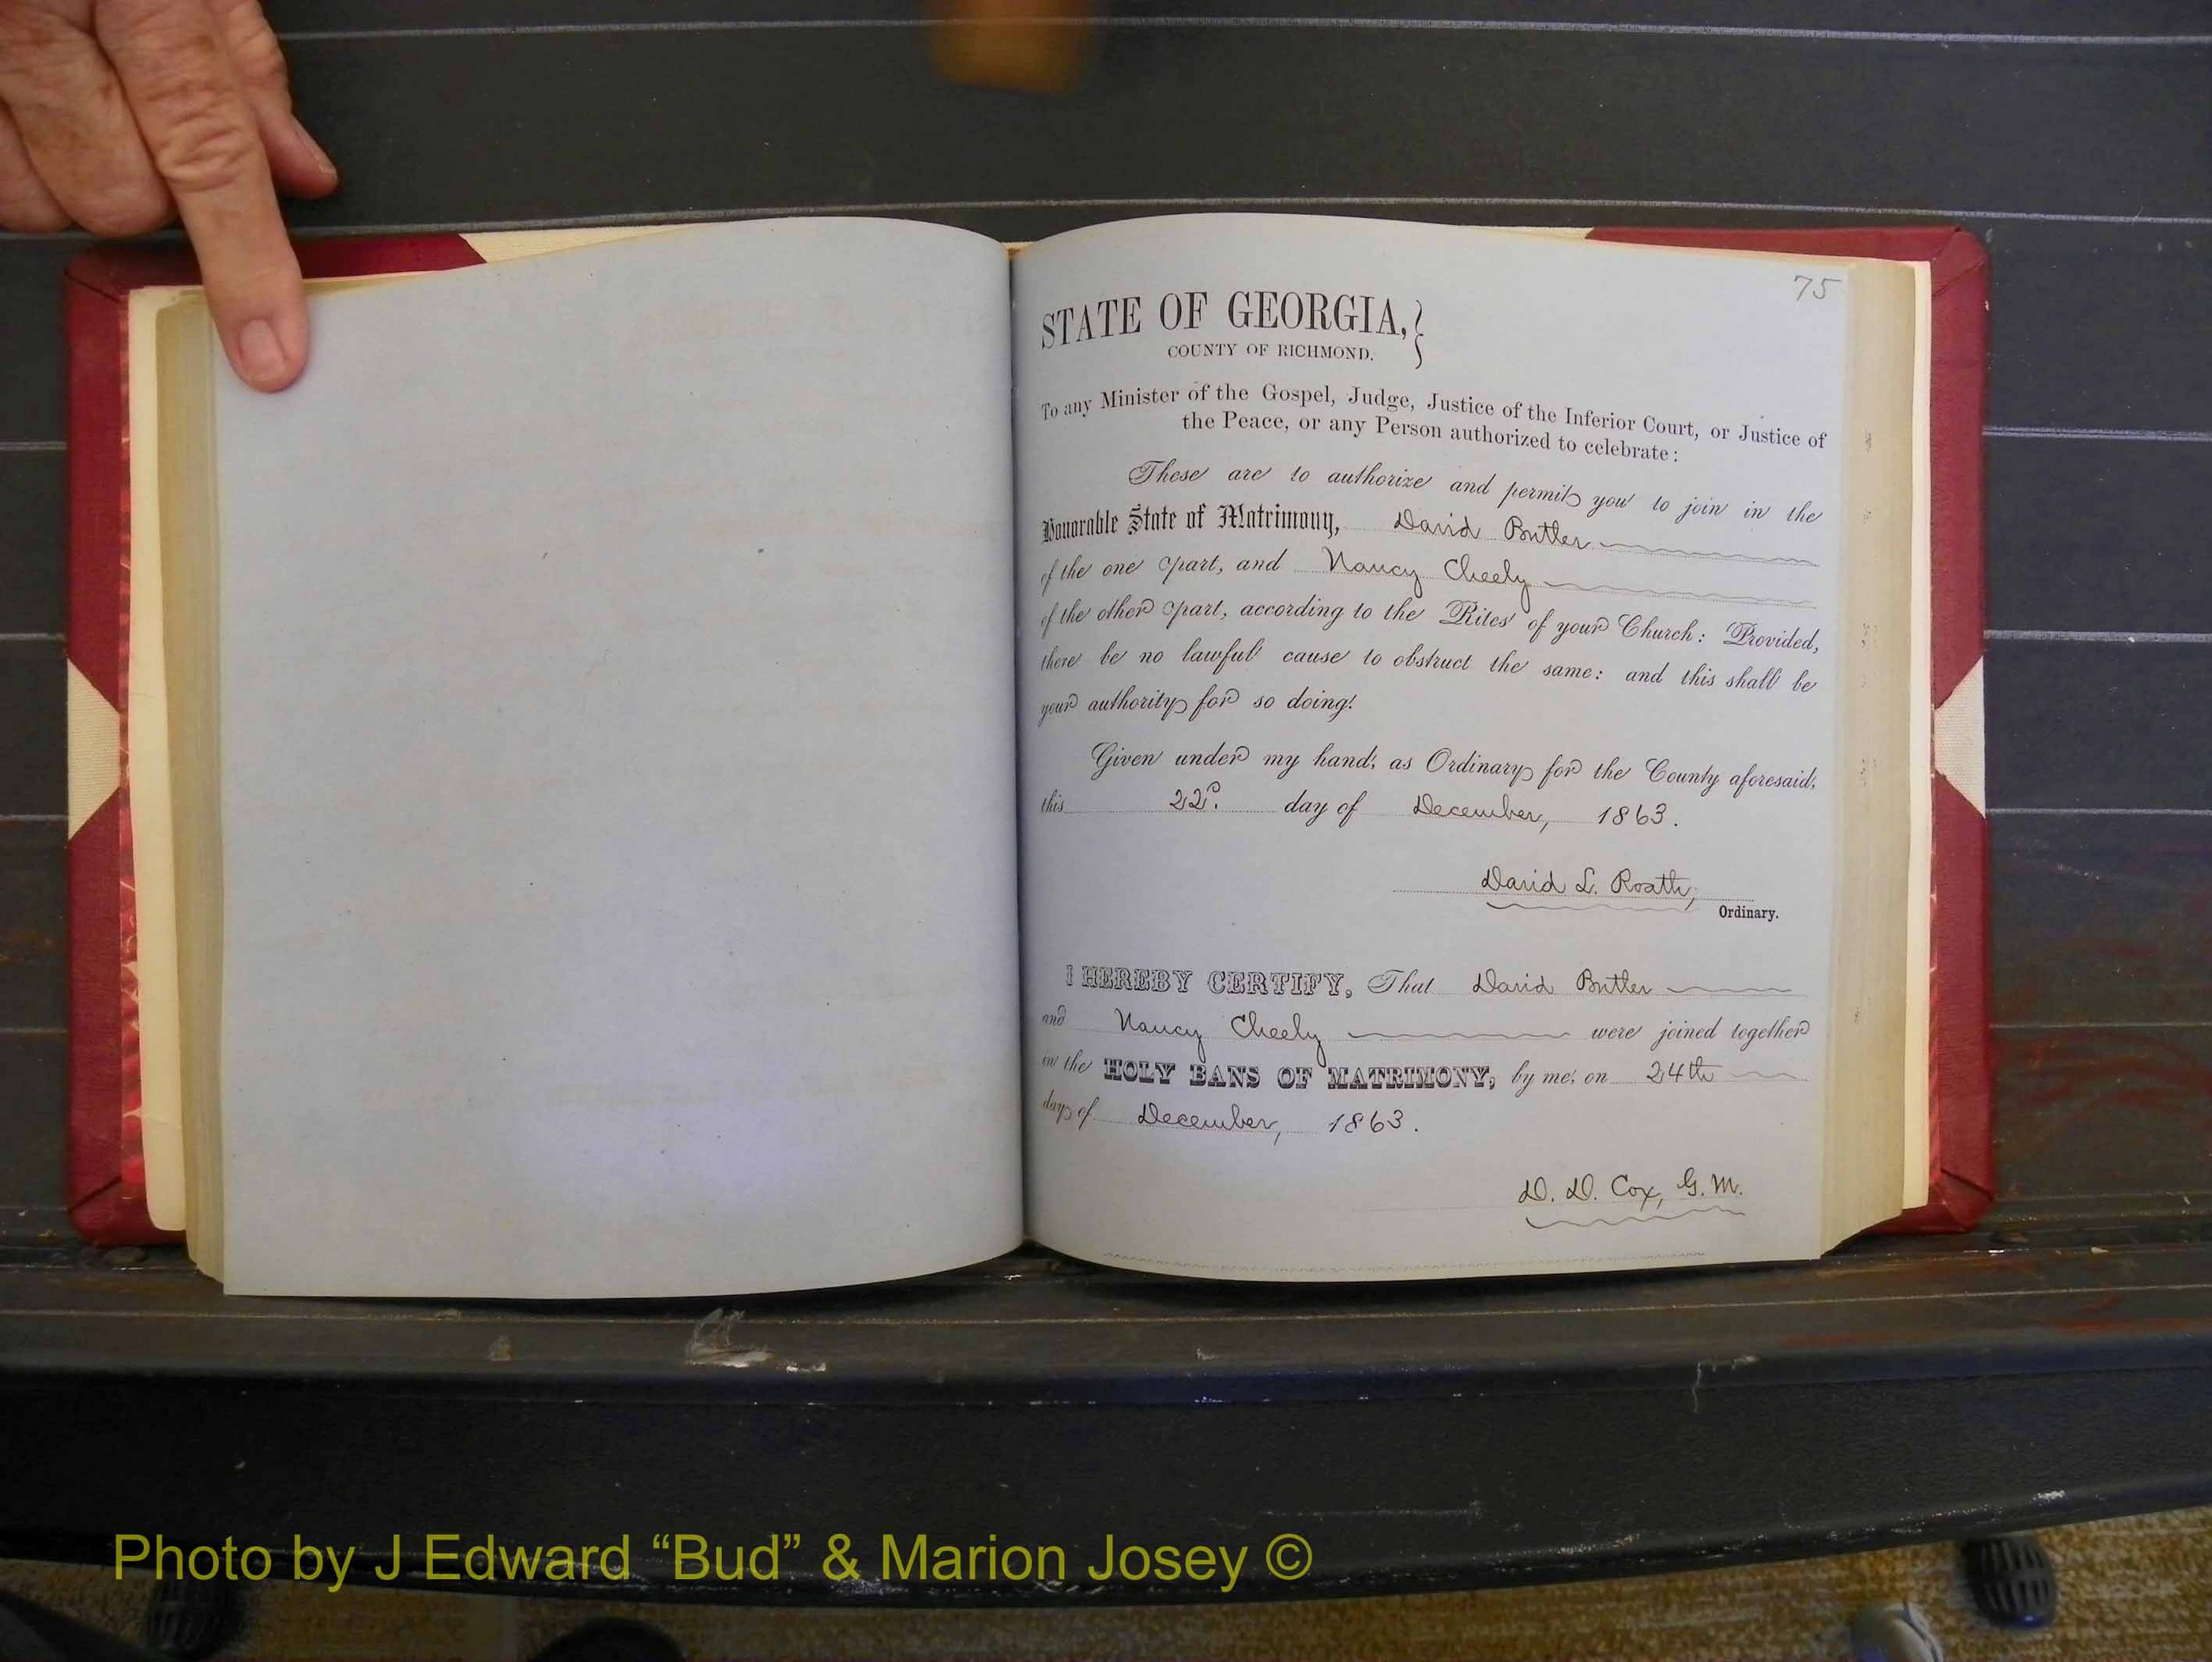 75
STATE OF GEORGIA,
COUNTY OF RICHMOND.
To any Minister of the Gospel, Judge, Justice of the Inferior Court, or Justice of
the Peace, or any Person authorized to celebrate:
These are to authorize and permit you to join in the
Honorable State of Matrimony, David Butler
of the one part, and Nancy Cheely
of the other part, according to the Rites of your Church: Provided,
there be no lawful cause to obstruct the same: and this shall be
your authority for so doing.
Given under my hand, as Ordinary for the County aforesaid,
this 22d. day of December, 1863.
David L. Roath,
Ordinary.
I HEREBY CERTIFY, That David Butler
and Nancy Cheely were joined together
in the HOLY BANS OF MATRIMONY, by me, on 24th
day of December, 1863.
D. D. Cox, G. M.
Photo by J Edward “Bud” & Marion Josey ©